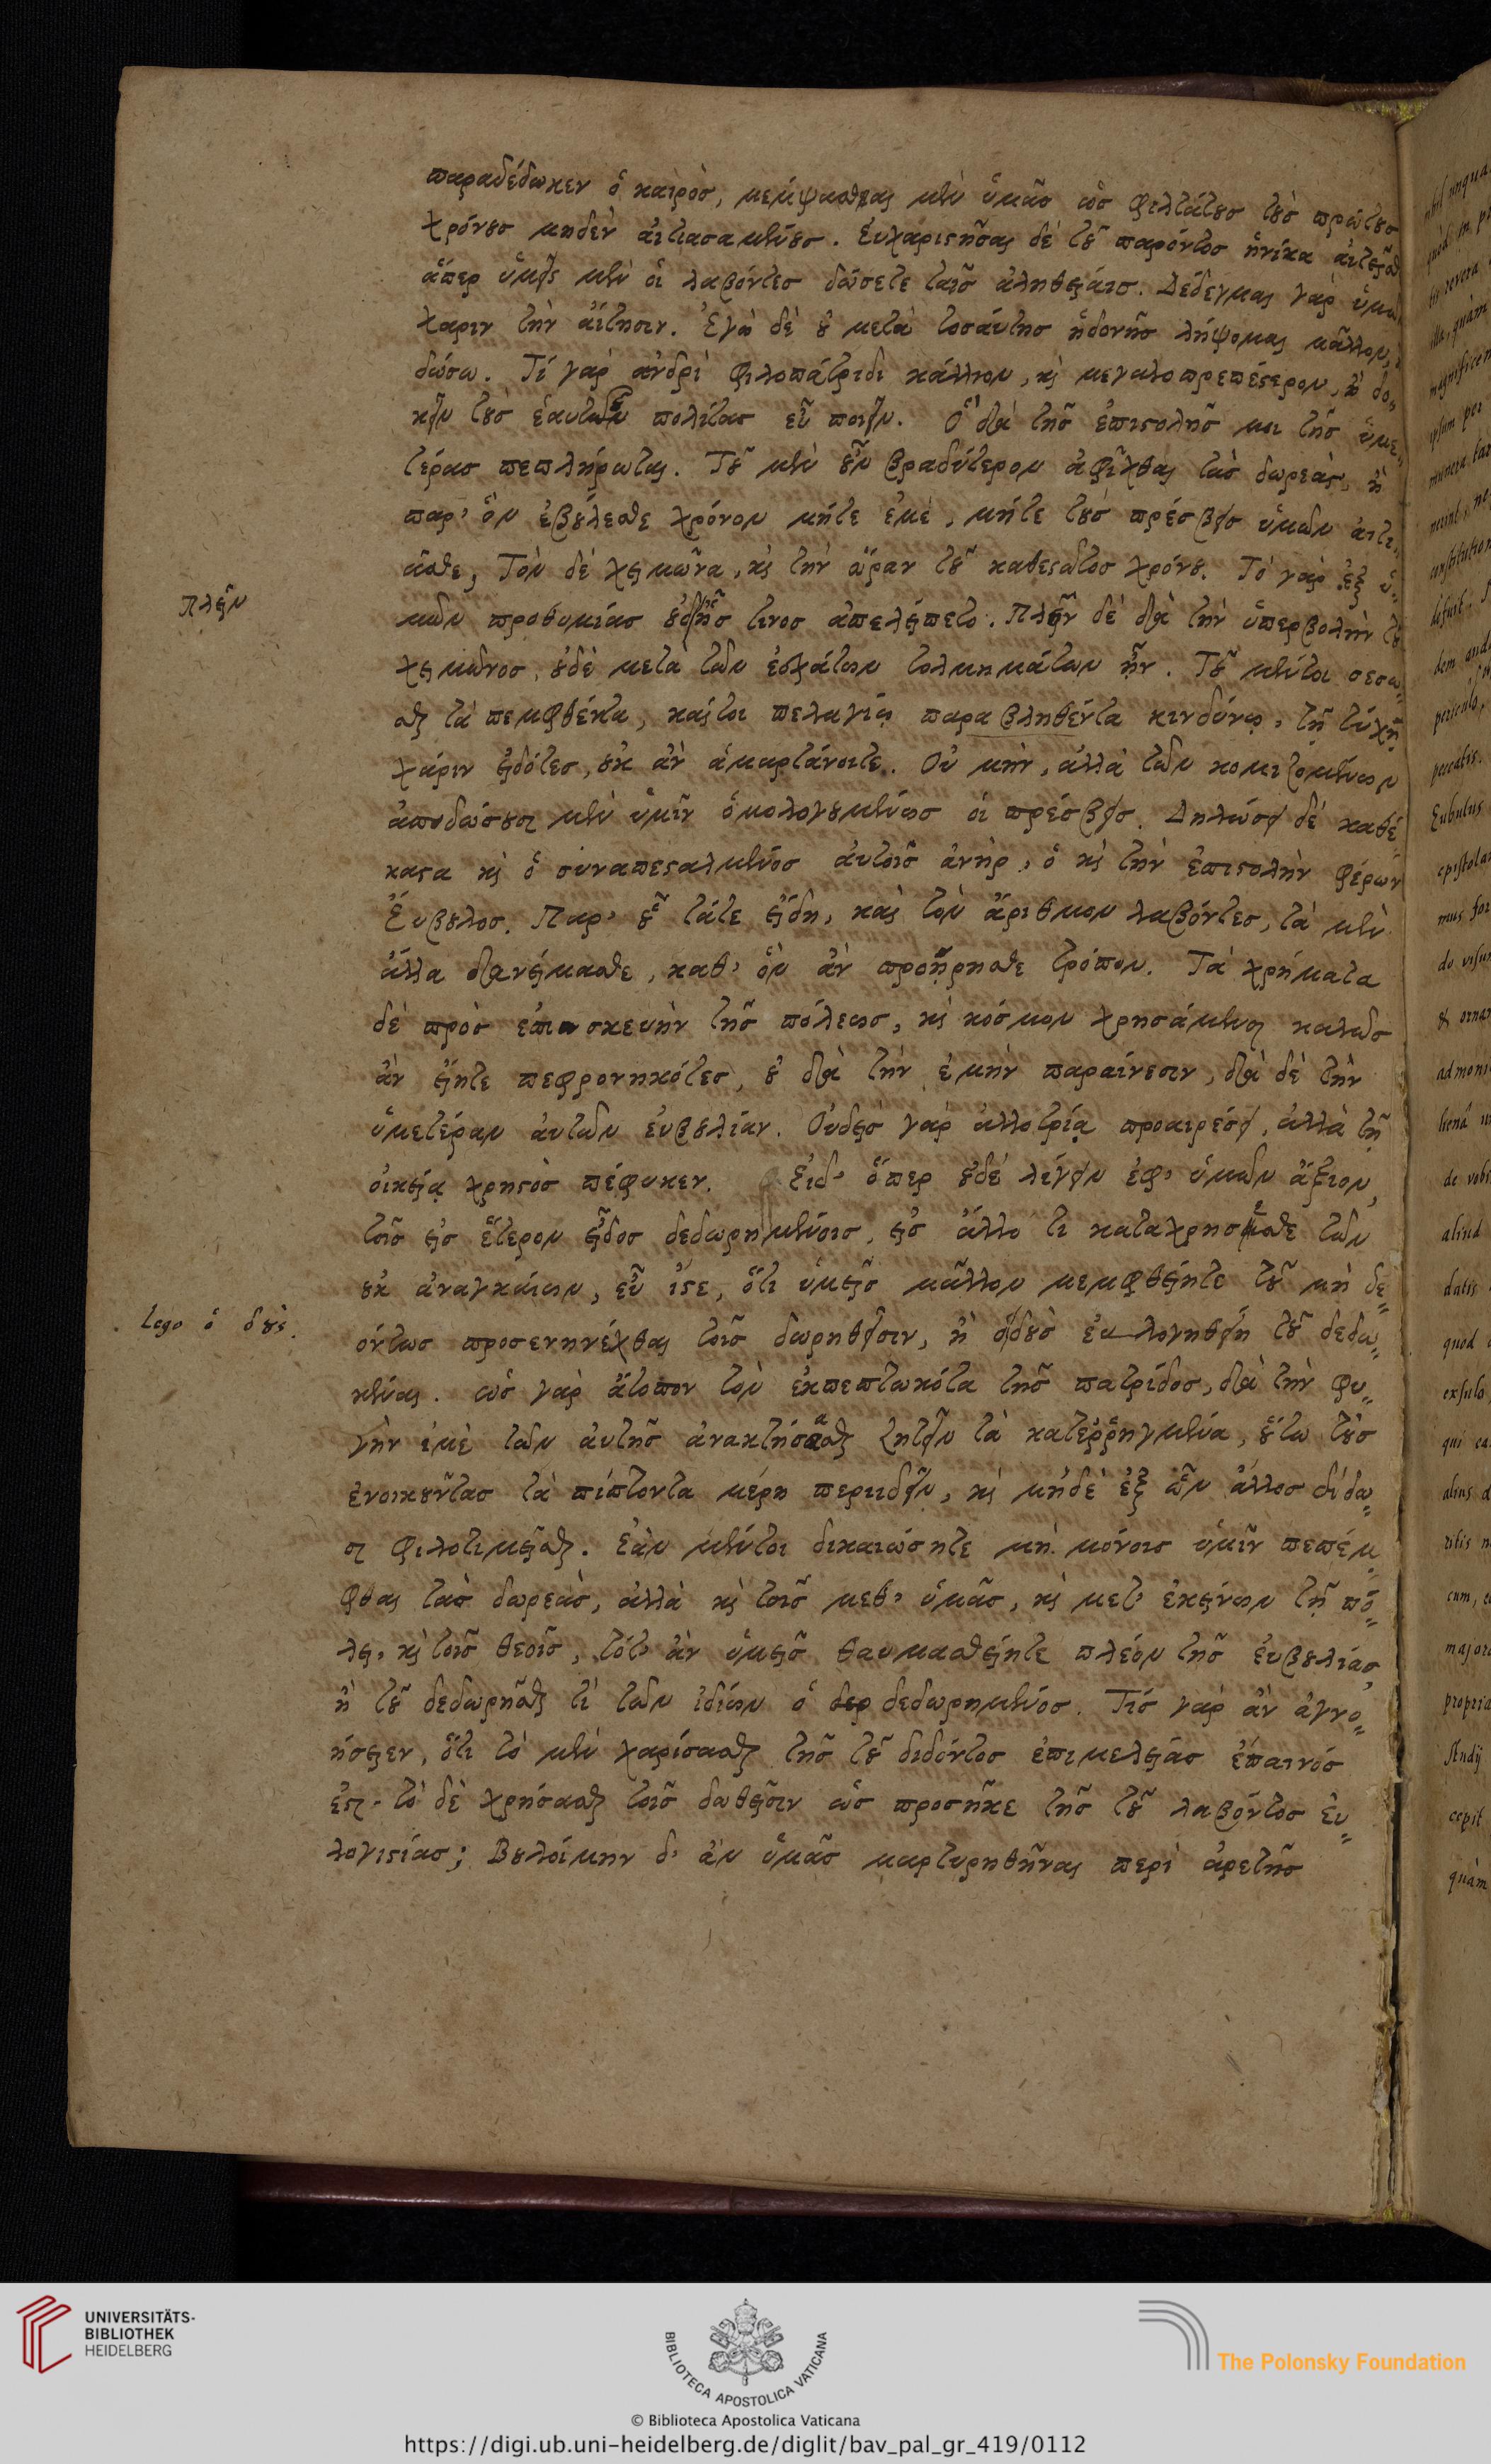 παραδέδωκεν ὁ καιρὸς, μέμψασθαι μὲν ὑμᾶς ὡς φιλτάτους τοὺς πρώτους
χρόνους μηδὲν αἰτιασαμένους. Εὐχαριστῆσαι δὲ τοῦ παρόντος ἡνίκα αἰτεῖσθε
ἅπερ ὑμεῖς μὲν οἱ λαβόντες δώσετε ταῖς ἀληθείαις. Δέδεγμαι γὰρ ὑμῶν
χάριν τὴν αἴτησιν. Ἐγὼ δὲ οὐ μετὰ τοσαύτης ἡδονῆς λήψομαι μᾶλλον,
δώσω. Τί γὰρ ἀνδρὶ φιλοπάτριδι κάλλιον, καὶ μεγαλοπρεπέστερον, ἢ δο-
κεῖν τοὺς ἑαυτοῦ πολίτας εὖ ποιεῖν. Ὃ διὰ τῆς ἐπιστολῆς μοι τῆς ὑμε-
τέρας πεπλήρωται. Τοῦ μὲν οὖν βραδύτερον ἀφῖχθαι τὰς δωρεὰς, ἢ
παρ' ὃν ἐβούλεσθε χρόνον μήτε ἐμὲ, μήτε τοὺς πρέσβεις ὑμῶν αἰτι-
ᾶσθε, Τὸν δὲ χειμῶνα, καὶ τὴν ὥραν τοῦ καθεστῶτος χρόνου. Τὸ γὰρ ἐξ ἡ-
μῶν προθυμίας οὐδενός τινος ἀπελείπετο. Πλὴν δὲ διὰ τὴν ὑπερβολὴν τοῦ
Πλεῖν
χειμῶνος, οὐδὲ μετὰ τῶν ἐσχάτων τολμημάτων ἦν. Τοῦ μέντοι σεσω-
σθαι τὰ πεμφθέντα, καίτοι πελαγίῳ παραβληθέντα κινδύνῳ, τῇ τύχῃ
χάριν εἰδότες, οὐκ ἂν ἁμαρτάνοιτε. Οὐ μὴν, ἀλλὰ τῶν κομιζομένων
ἀποδώσουσι μὲν ὑμῖν ὁμολογουμένως οἱ πρέσβεις. Δηλώσει δὲ καθέ-
καστα καὶ ὁ συναπεσταλμένος αὐτοῖς ἀνὴρ, ὁ καὶ τὴν ἐπιστολὴν φέρων
Εὔβουλος. Παρ' οὗ τά τε εἴδη, καὶ τὸν ἀριθμὸν λαβόντες, τὰ μὲν
ἄλλα διανείμασθε, καθ' ὃν ἂν προῄρησθε τρόπον. Τὰ χρήματα
δὲ πρὸς ἐπισκευὴν τῆς πόλεως, καὶ κόσμον χρησάμενοι καλῶς
ἂν εἴητε πεφρονηκότες, οὐ διὰ τὴν ἐμὴν παραίνεσιν, διὰ δὲ τὴν
ὑμετέραν αὐτῶν εὐβουλίαν. Οὐδεὶς γὰρ ἀλλοτρίᾳ προαιρέσει, ἀλλὰ τῇ
οἰκείᾳ χρηστὸς πέφυκεν. Εἰ δ' ὅπερ οὐδὲ λέγειν ἐφ' ὑμῶν ἄξιον,
τοῖς εἰς ἕτερον εἶδος δεδωρημένοις, εἰς ἄλλο τι καταχρήσησθε τῶν
οὐκ ἀναγκαίων, εὖ ἴστε, ὅτι ὑμεῖς μᾶλλον μεμφθείητε τοῦ μὴ δε-
όντως προσενηνέχθαι τοῖς δωρηθεῖσιν, ἢ ὁ δοὺς εὐλογηθείη τοῦ δεδω-
Lego ὁ δούς.
κέναι. ὡς γὰρ ἄτοπον τὸν ἐκπεπτωκότα τῆς πατρίδος, διὰ τὴν φυ-
γὴν ἐμὲ τῶν αὐτῆς ἀνακτήσασθαι ζητεῖν τὰ κατεῤῥηγμένα, οὕτω τοὺς
ἐνοικοῦντας τὰ πίπτοντα μέρη περιιδεῖν, καὶ μηδὲ ἐξ ὧν ἄλλος δίδω-
σι φιλοτιμεῖσθαι. Ἐὰν μέντοι δικαιώσητε μὴ μόνοις ὑμῖν πεπέμ-
φθαι τὰς δωρεὰς, ἀλλὰ καὶ τοῖς μεθ' ὑμᾶς, καὶ μετ' ἐκείνων τῇ πό-
λει, καὶ τοῖς θεοῖς, τότ' ἂν ὑμεῖς θαυμασθείητε πλέον τῆς εὐβουλίας,
ἢ τοῦ δεδωρῆσθαι τι τῶν ἰδίων ὁ δεδωρημένος. Τίς γὰρ ἂν ἀγνο-
ήσειεν, ὅτι τὸ μὲν χαρίσασθαι τῆς τοῦ διδόντος ἐπιμελείας ἔπαινός
ἐστι· τὸ δὲ χρήσασθαι τοῖς δοθεῖσιν ὡς προσῆκε τῆς τοῦ λαβόντος εὐ-
λογιστίας; Βουλοίμην δ' ἂν ὑμᾶς μαρτυρηθῆναι περὶ ἀρετῆς
Eubulus
UNIVERSITÄTS-
BIBLIOTHEK
HEIDELBERG
BIBLIOTECA APOSTOLICA VATICANA
The Polonsky Foundation
© Biblioteca Apostolica Vaticana
https://digi.ub.uni-heidelberg.de/diglit/bav_pal_gr_419/0112